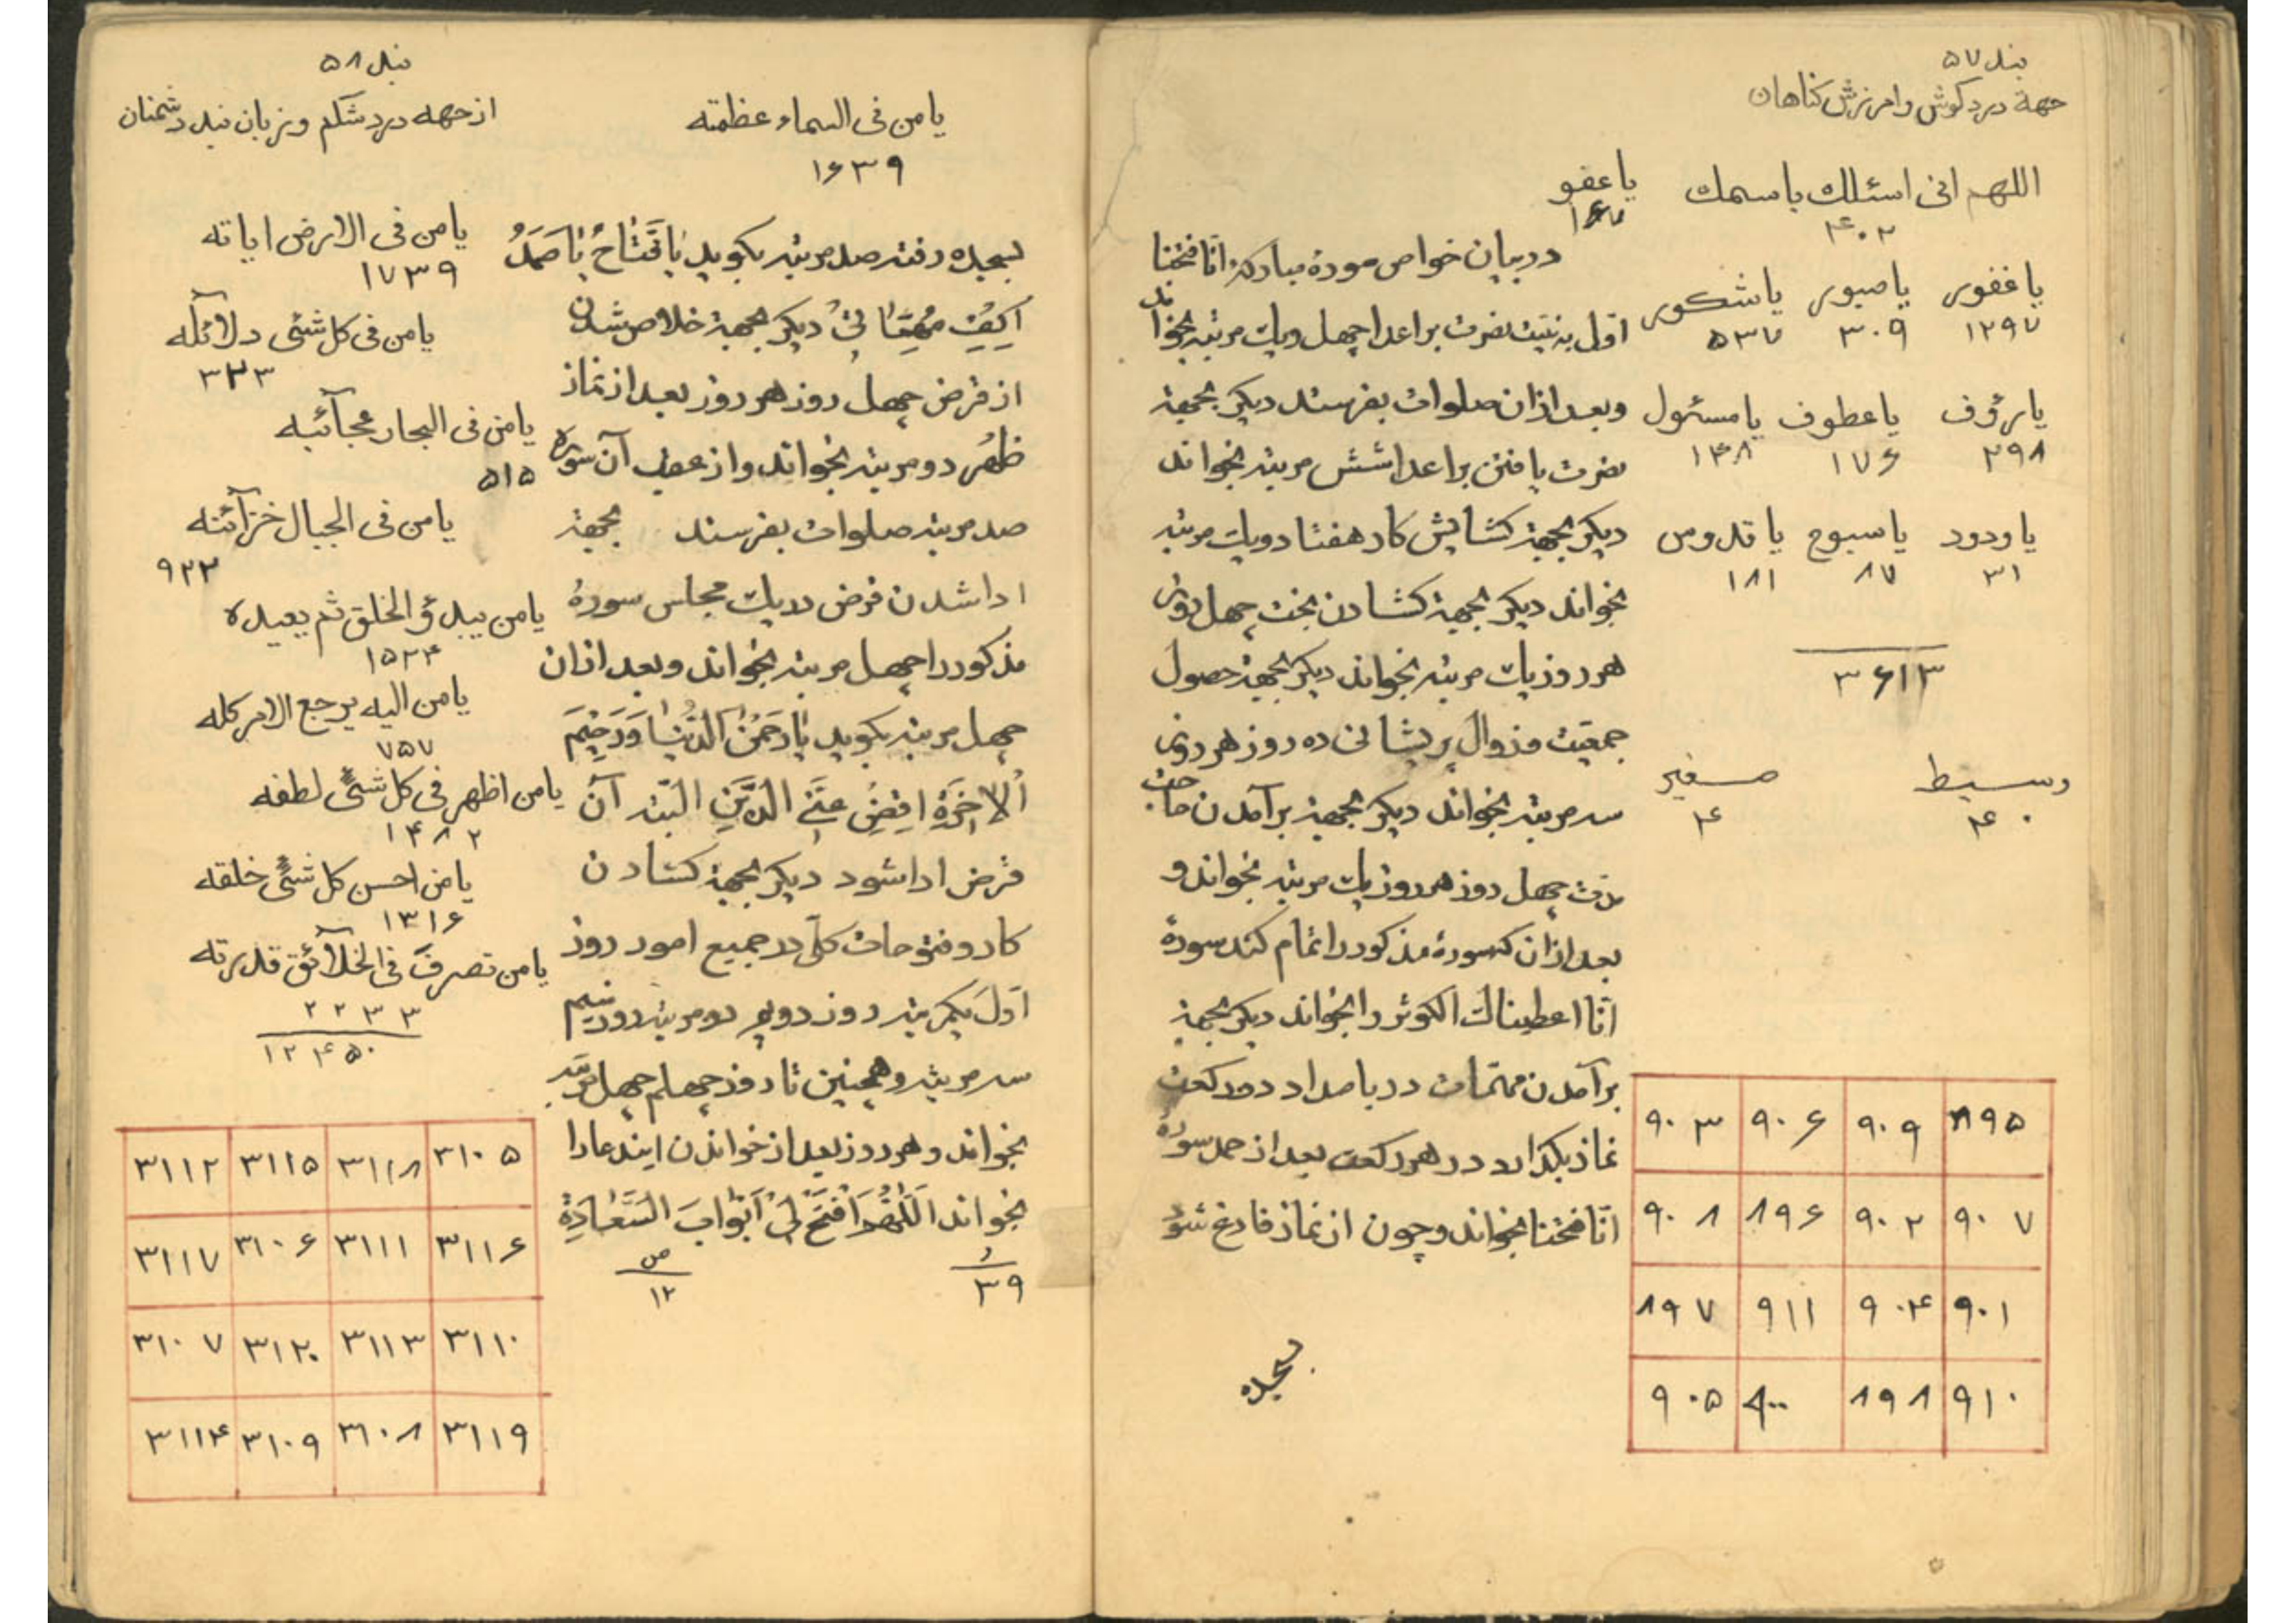 بند ۵۷
جهة درد کوش و امرزش کناهان
اللهم انی اسئلك باسمك
۴۰۲
یا عفو
۱۶۷
یا غفور یا صبور یا شکور
۱۲۹۷ ۳۰۹ ۵۳۷
یا رؤف یا عطوف یا مسئول
۲۹۸ ۱۷۶ ۱۴۸
یا ودود یا سبوح یا قدوس
۳۱ ۸۷ ۱۸۱
۳۶۱۳
وسیط صغیر
۴۰ ۴
۸۹۵ ۹۰۹ ۹۰۶ ۹۰۳
۹۰۷ ۹۰۲ ۸۹۶ ۹۰۸
۹۰۱ ۹۰۴ ۹۱۱ ۸۹۷
۹۱۰ ۸۹۸ ۹۰۰ ۹۰۵
در بیان خواص سورهٔ مبارکهٔ انا فتحنا
اول به نیت نصرت بر اعدا چهل ویك مرتبه بخواند
وبعد ازان صلوات بفرستد دیکر بجهة
نصرت یافتن بر اعدا شش مرتبه بخواند
دیکر بجهة کشایش کار هفتاد ویك مرتبه
بخواند دیکر بجهة کشادن بخت چهل روز
هر روز یك مرتبه بخواند دیکر بجهة حصول
جمعیت و زوال پریشانی ده روز هر روز
سه مرتبه بخواند دیکر بجهة برآمدن حاجت
مدت چهل روز هر روز یك مرتبه بخواند و
بعد ازان که سورهٔ مذکور را تمام کند سورهٔ
انا اعطیناك الکوثر را بخواند دیکر بجهة
برآمدن مهمات در بامداد دو رکعت
نماز بکذارد در هر رکعت بعد از حمد سورهٔ
انا فتحنا بخواند و چون از نماز فارغ شود
بسجده
یا من فی السماء عظمته
۱۶۳۹
بسجده رفته صد مرتبه بکوید یا فَتّاحُ یا صَمَدُ
اِکفِ مُهِمّاتی دیکر بجهة خلاص شدن
از قرض چهل روز هر روز بعد از نماز
ظهر دو مرتبه بخواند و از عقب آن سوره
صد مرتبه صلوات بفرستد بجهة
ادا شدن قرض در یك مجلس سورهٔ
مذکور را چهل مرتبه بخواند و بعد ازان
چهل مرتبه بکوید یا رَحمنَ الدُنیا وَرَحیمَ
الاخِرَةِ اِقضِ عَنّی الدَّینِ البته آن
قرض ادا شود دیکر بجهة کشادن
کار و فتوحات کلّ در جمیع امور روز
اول یکمرتبه روز دویم دو مرتبه روز سیم
سه مرتبه و همچنین تا روز چهلم چهل مرتبه
بخواند و هر روز بعد از خواندن ایندعا را
بخواند اَللّهُمَّ افتَح لی اَبوابَ السَّعادَةِ
۳۹ ص ۱۲
بند ۵۸
از جهه درد شکم و زبان بند دشمنان
یا من فی الارض ایاته
۱۷۳۹
یا من فی کل شئی دلائله
۳۲۳
یا من فی البحار عجآئبه
۵۱۵
یا من فی الجبال خزآئنه
۹۲۳
یا من یبدؤ الخلق ثم یعیده
۱۵۲۴
یا من الیه یرجع الامر کله
۷۵۷
یا من اظهر فی کل شئی لطفه
۱۴۸۲
یا من احسن کل شئی خلقه
۱۳۱۶
یا من تصرف فی الخلآئق قدرته
۲۲۳۳
۱۲۴۵۰
۳۱۰۵ ۳۱۱۸ ۳۱۱۵ ۳۱۱۲
۳۱۱۶ ۳۱۱۱ ۳۱۰۶ ۳۱۱۷
۳۱۱۰ ۳۱۱۳ ۳۱۲۰ ۳۱۰۷
۳۱۱۹ ۳۱۰۸ ۳۱۰۹ ۳۱۱۴